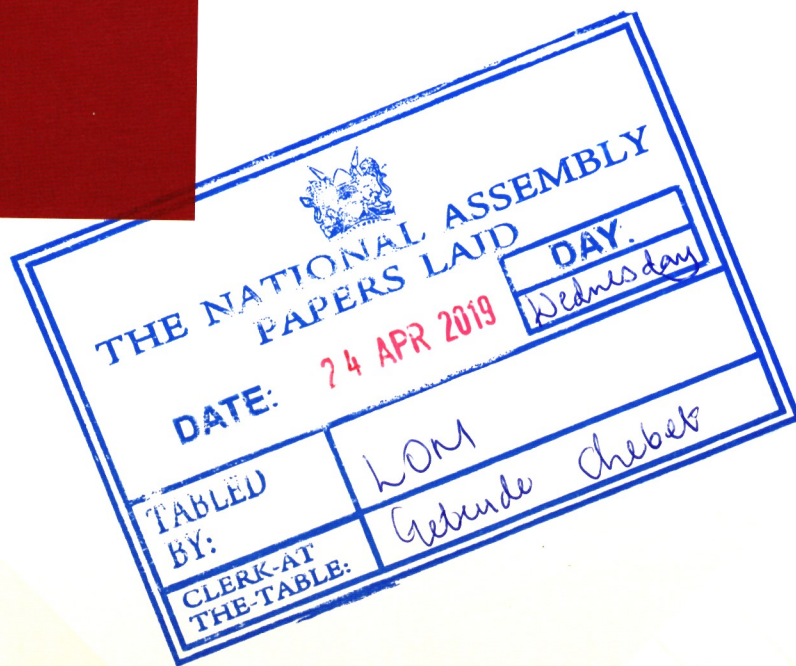 THE NATIONAL ASSEMBLY
PAPERS LAID
DATE: 24 APR 2019
DAY.
Wednesday
TABLED
BY:
LOM
CLERK-AT
THE-TABLE:
Chebet